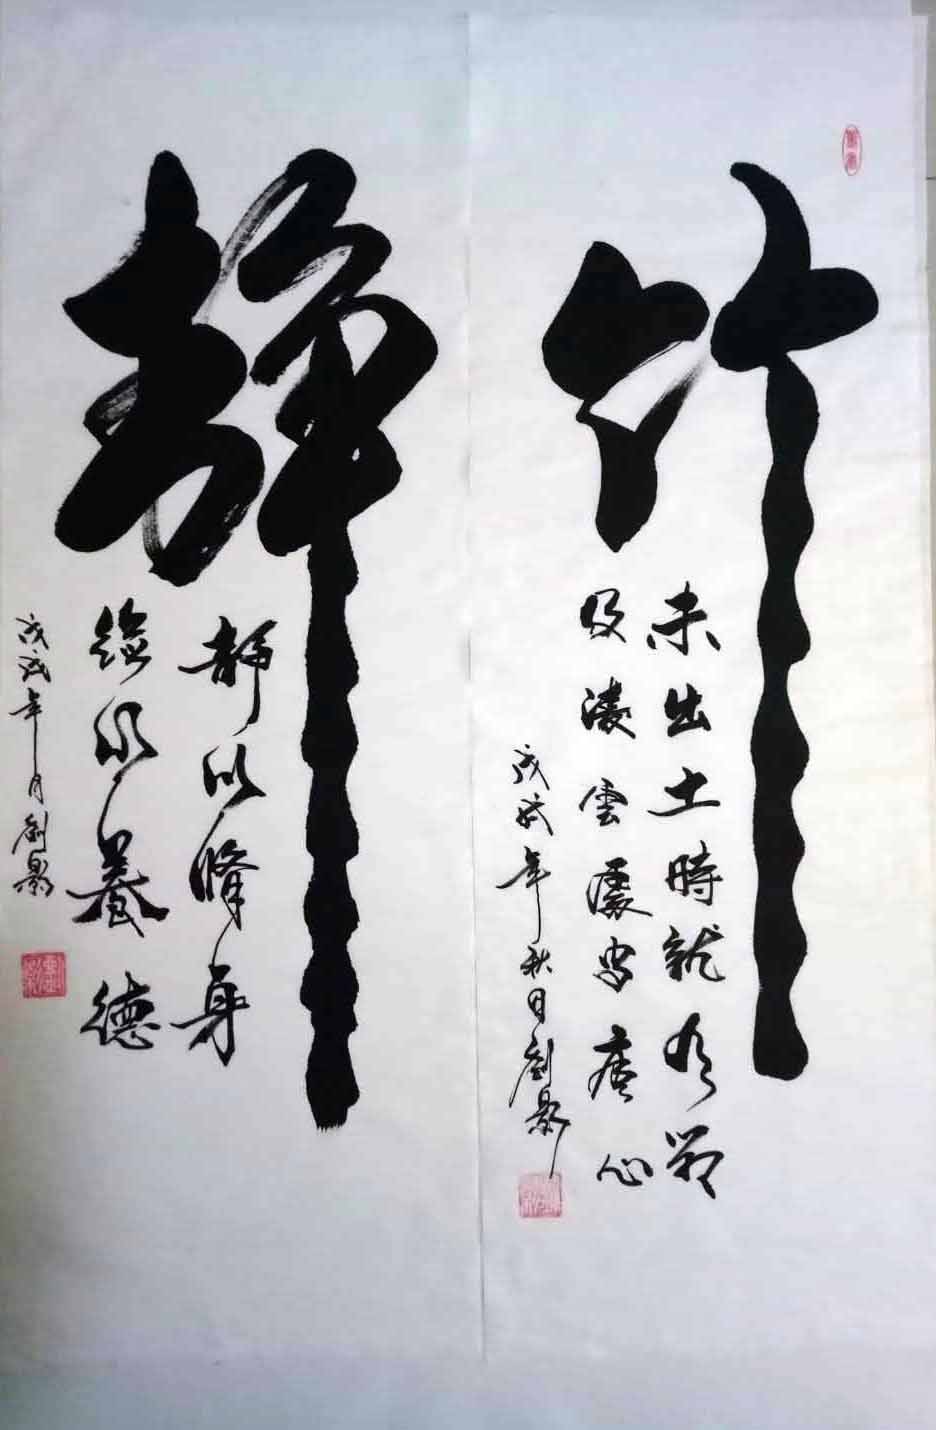 竹
未出土時就有節
及凌雲處尚虛心
戊戌年秋月劉影
靜
靜以修身
儉以養德
戊戌年月劉影